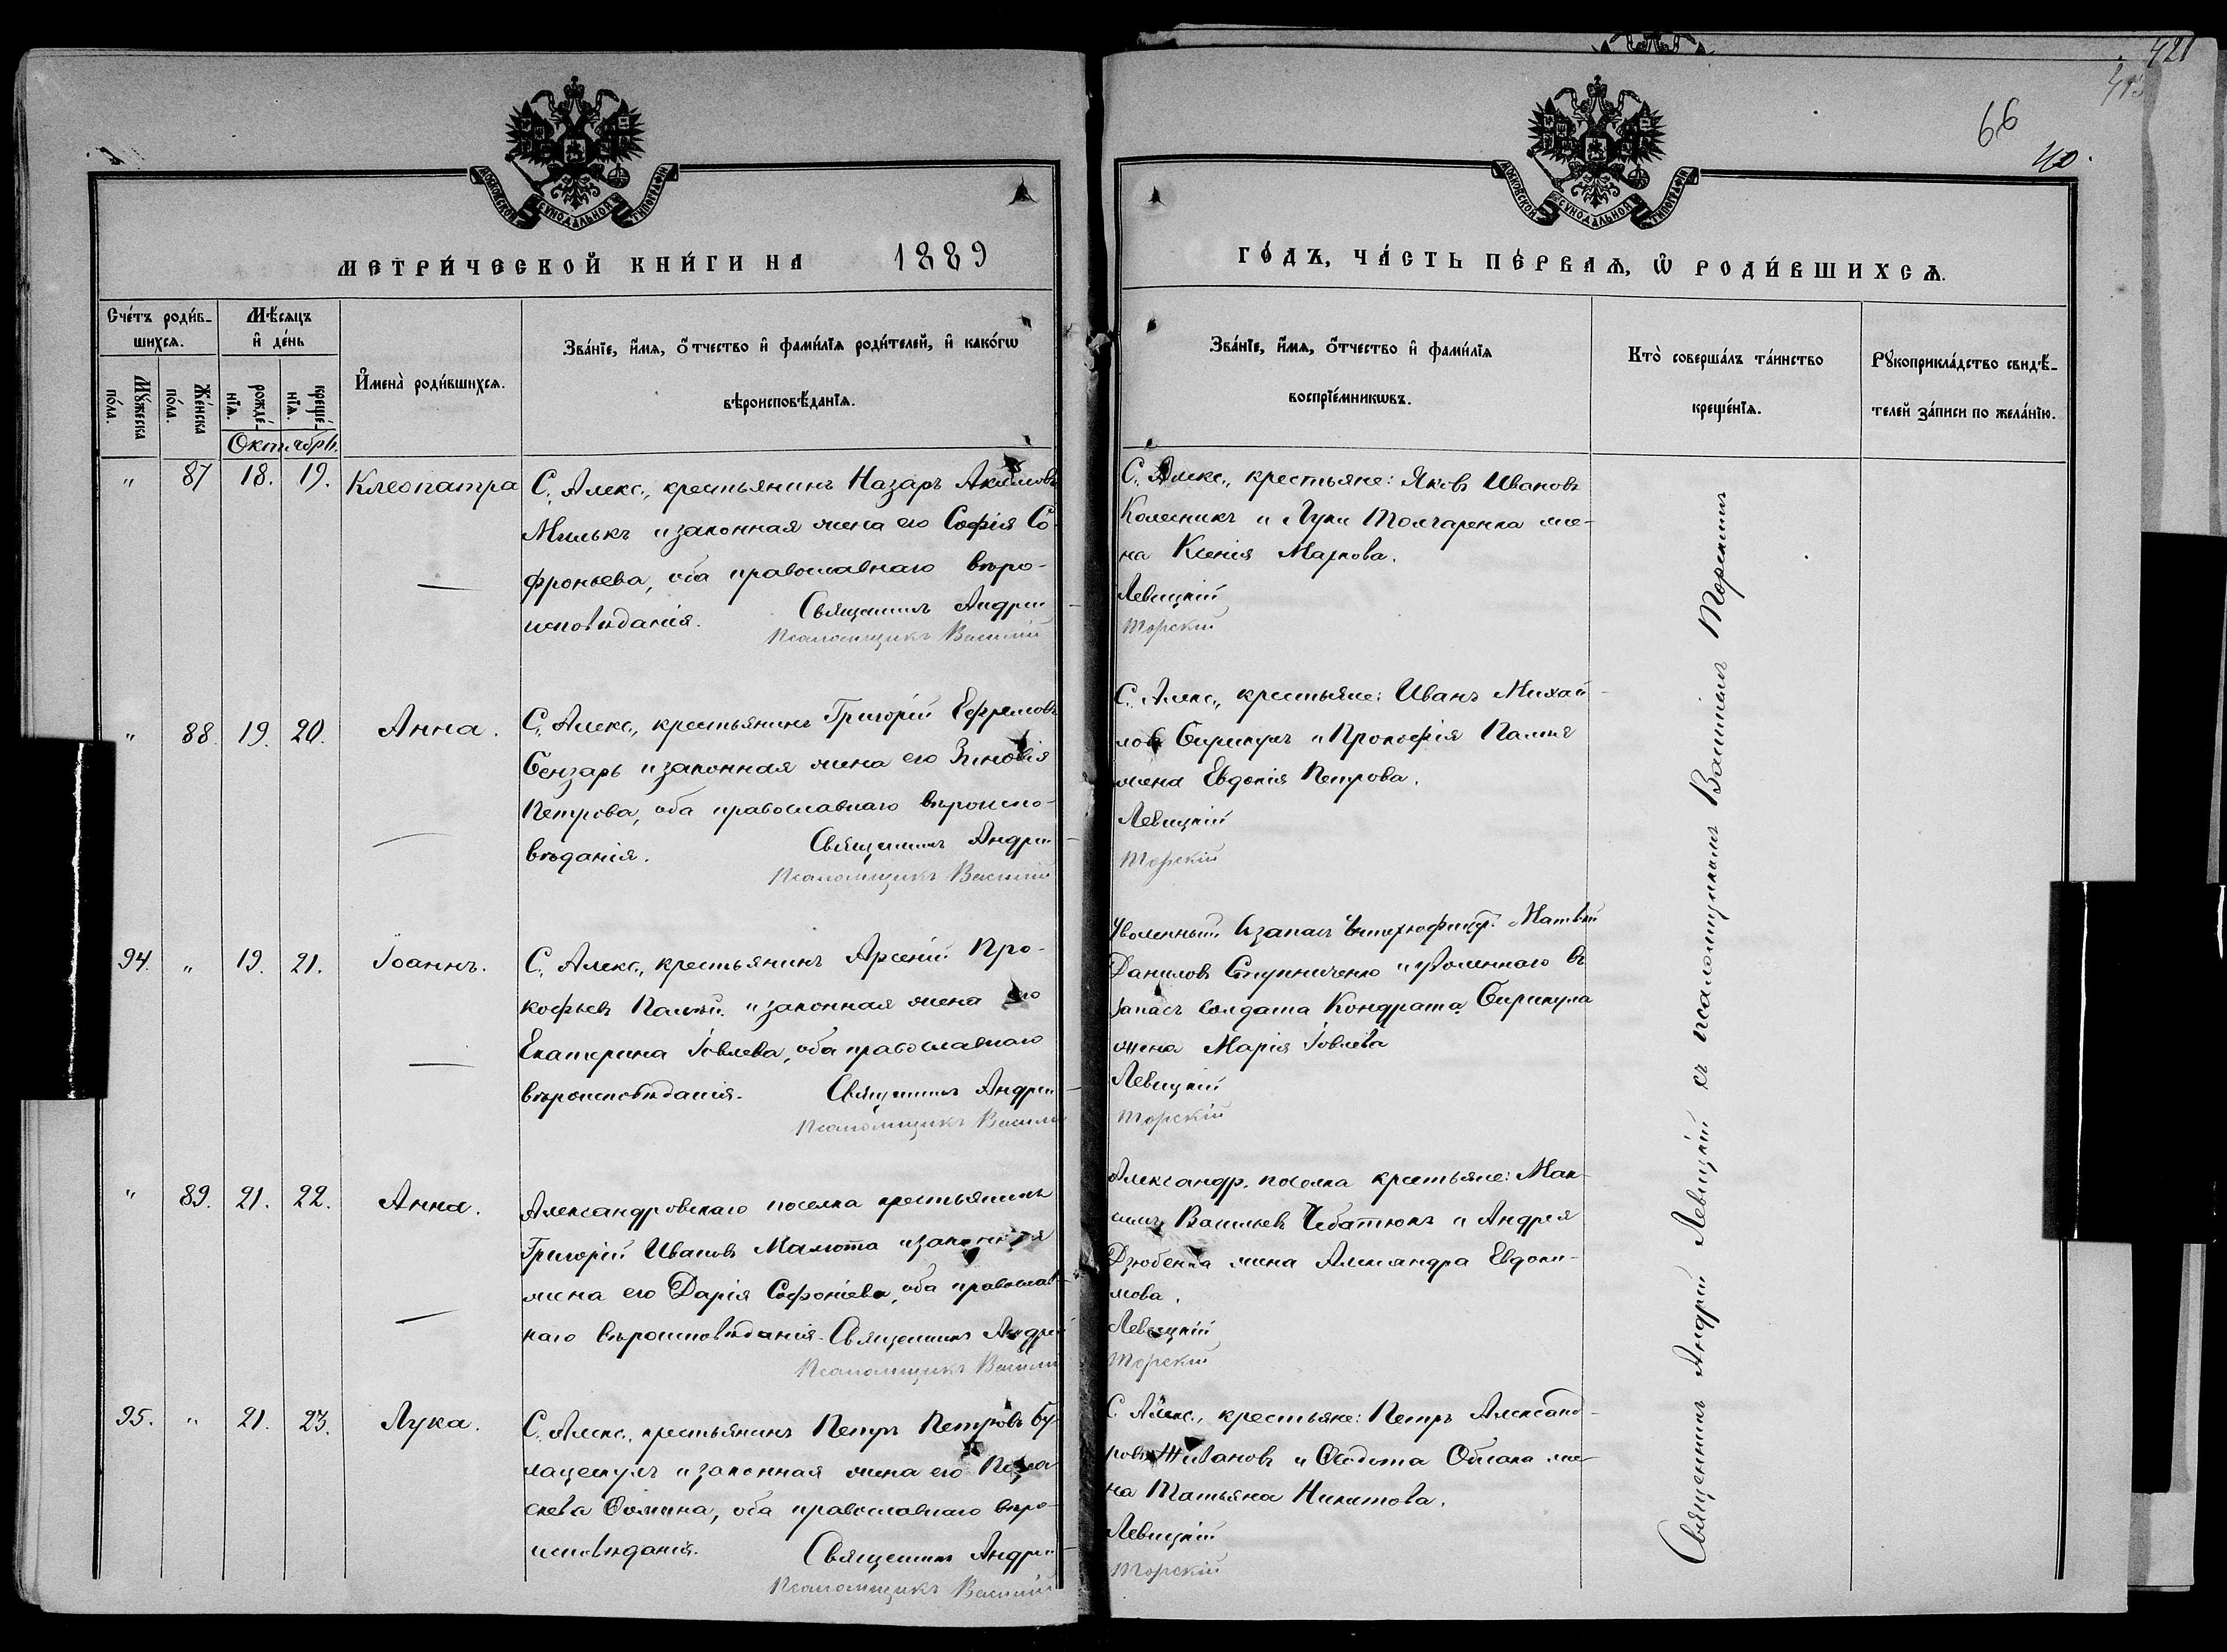 421
415
66
40.
МОСКОВСКОЙ СУНОДАЛЬНОЙ ТИПОГРАФІИ
МОСКОВСКОЙ СУНОДАЛЬНОЙ ТИПОГРАФІИ
МЕТРИ́ЧЕСКОЙ КНИ́ГИ НА 1889
ГО́ДЪ, ЧА́СТЬ ПЕ́РВАѦ, Ѡ҆ РОДИ́ВШИХСѦ.
Сче́тъ роди́в-
шихсѧ.
Мꙋ́жеска
по́ла.
Же́нска
по́ла.
Мѣ́сѧцъ
и҆ де́нь
рожде́-
нїѧ.
креще́-
нїѧ.
Октябрь.
И҆мена̀ роди́вшихсѧ.
Зва́нїе, и҆́мѧ, ѻ҆́тчество и҆ фами́лїѧ роди́телей, и҆ како́гѡ
вѣроисповѣ́данїѧ.
Зва́нїе, и҆́мѧ, ѻ҆́тчество и҆ фами́лїѧ
воспрїе́мникѡвъ.
Кто̀ соверша́лъ та́инство
креще́нїѧ.
Рꙋкоприкла́дство свидѣ́-
телей за́писи по жела́нїю.
" 87 18. 19. Клеопатра
С. Алекс., крестьянинъ Назаръ Акимовъ
Мишькъ и законная жена его Софія Со-
фроньева, оба православнаго вѣро-
исповѣданія. Священникъ Андрей
Псаломщикъ Василій
С. Алекс., крестьяне: Яковъ Ивановъ
Колесникъ и Луки Толчаренка же-
на Ксенія Маркова.
Левицкій
Торскій
" 88. 19. 20. Анна.
С. Алекс., крестьянинъ Григорій Ефремовъ
Бензарь и законная жена его Зиновія
Петрова, оба православнаго вѣроиспо-
вѣданія. Священникъ Андрей
Псаломщикъ Василій
С. Алекс., крестьяне: Иванъ Михай-
ловъ Бирикулъ и Прокофія Палія
жена Евдокія Петрова.
Левицкій
Торскій
94. " 19. 21. Іоаннъ.
С. Алекс., крестьянинъ Арсеній Про-
кофьевъ Палій и законная жена его
Екатерина Іовлева, оба православнаго
вѣроисповѣданія. Священникъ Андрей
Псаломщикъ Василій
Уволенный въ запасъ Матвѣй
Даниловъ Ступниченко и уволеннаго въ
запасъ солдата Кондрата Бирикула
жена Марія Іовлева
Левицкій
Торскій
" 89. 21. 22. Анна.
Александровскаго поселка крестьянинъ
Григорій Ивановъ Малюта и законная
жена его Дарія Софоніева, оба православ-
наго вѣроисповѣданія. Священникъ Андрей
Псаломщикъ Василій
Александр. поселка крестьяне: Мак-
симъ Васильевъ Чебатюкъ и Андрея
Дзюбенка жена Александра Евдоки-
мова.
Левицкій
Торскій
95. " 21. 23. Лука.
С. Алекс., крестьянинъ Петръ Петровъ Бу-
лацекулъ и законная жена его Параскева
Ѳомина, оба православнаго вѣро-
исповѣданія. Священникъ Андрей
Псаломщикъ Василій
С. Алекс., крестьяне: Петръ Александ-
ровъ Живановъ и Ѳедота Облака же-
на Татьяна Никитова.
Левицкій
Торскій
Священникъ Андрей Левицкій съ псаломщикомъ Василіемъ Торскимъ